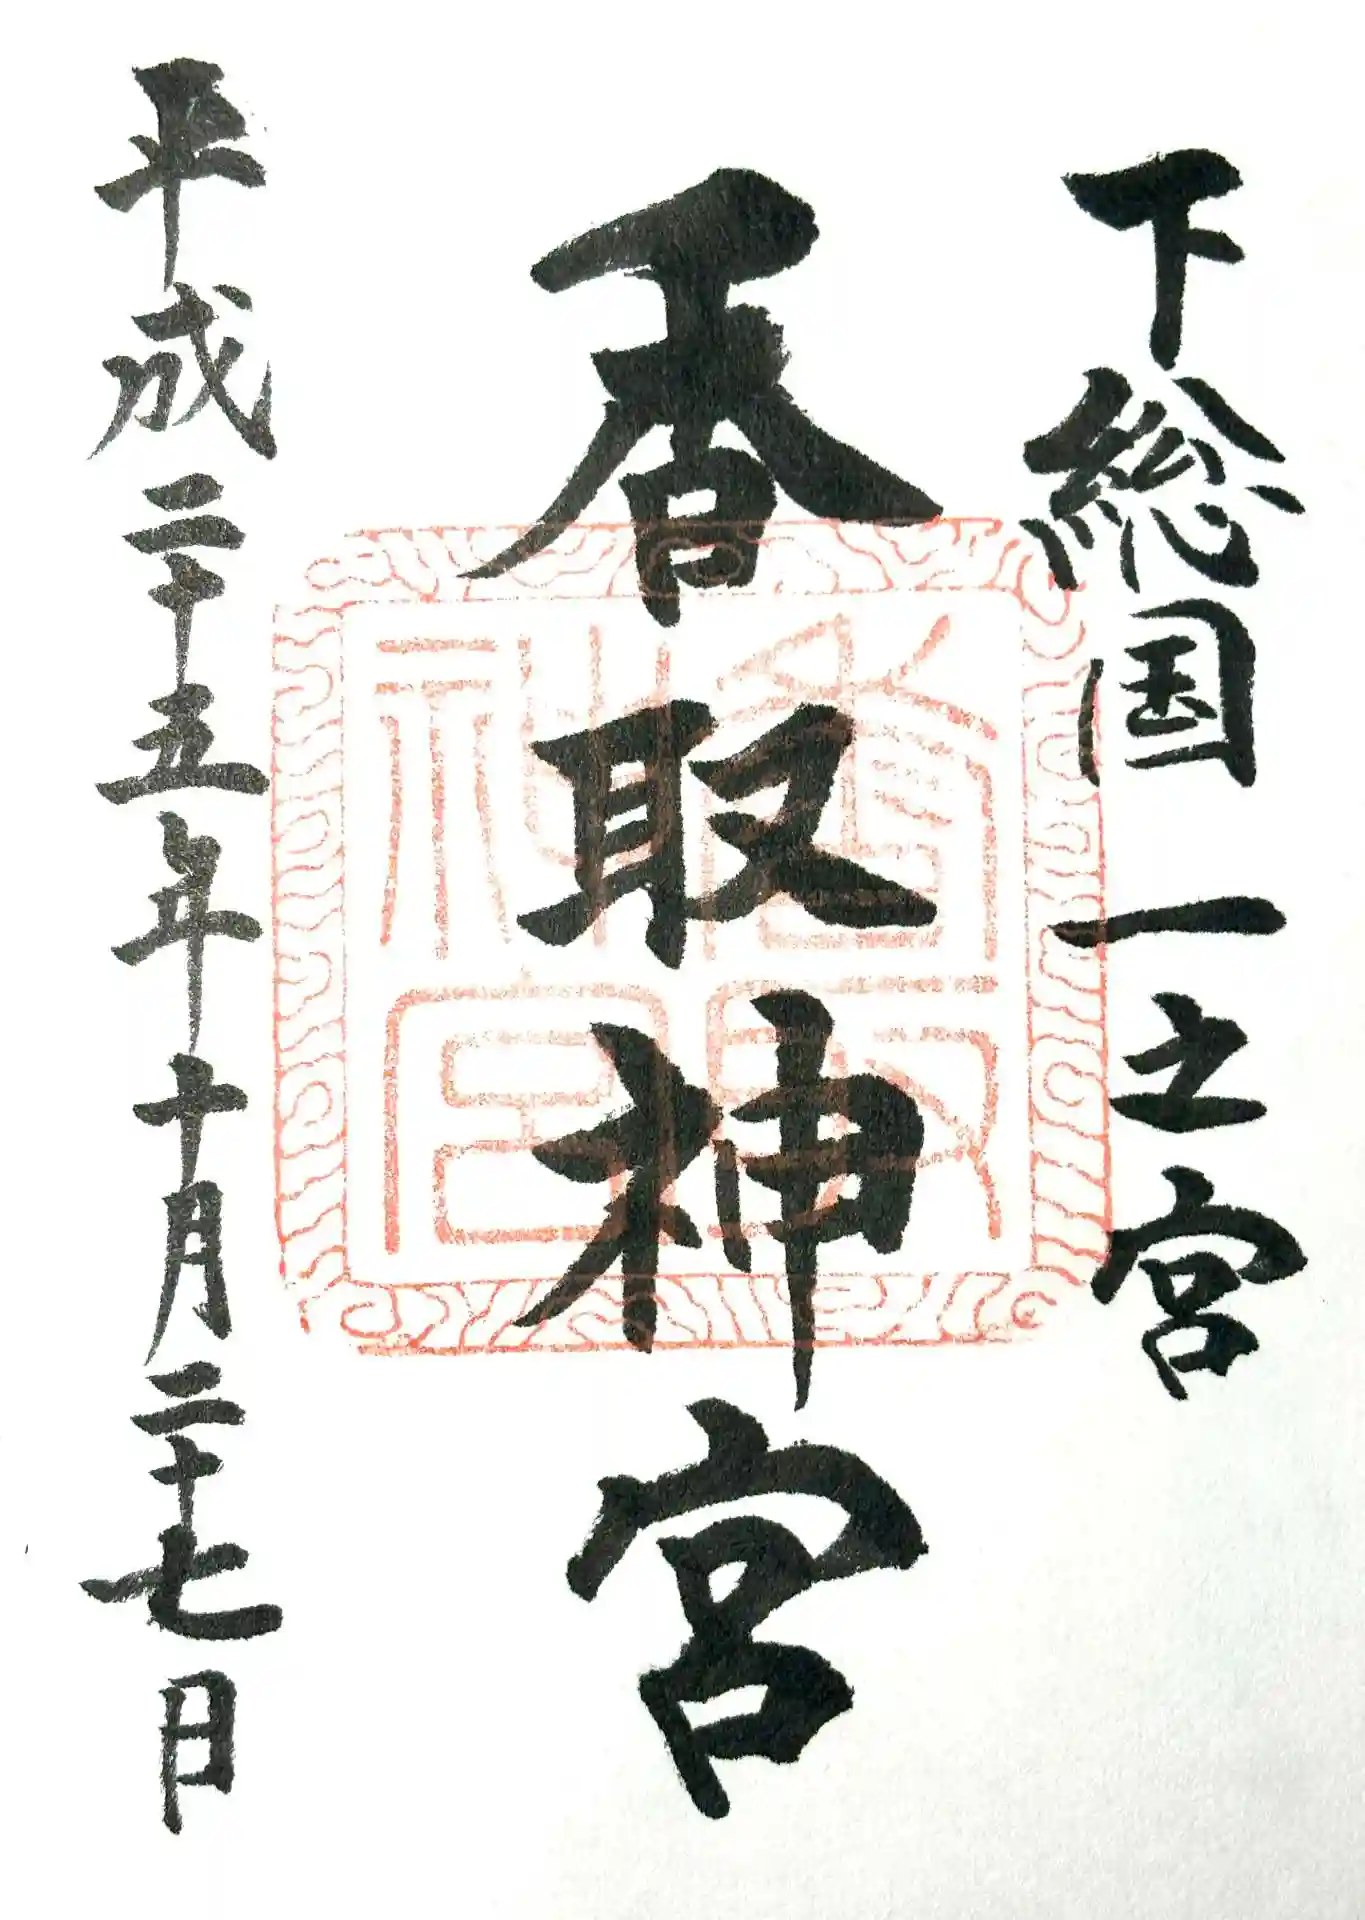 下総国一之宮
香取神宮
香取神宮
平成二十五年十月二十七日